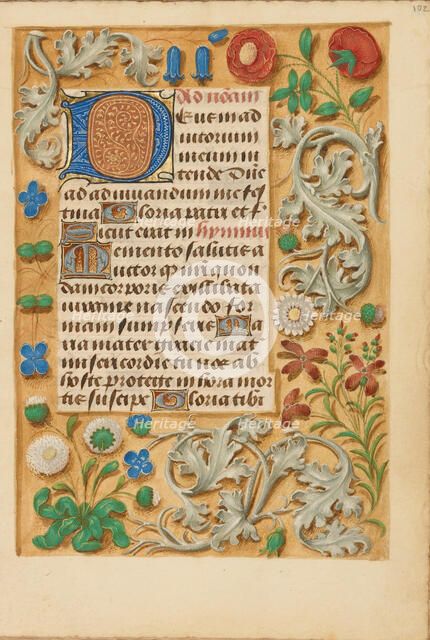 102
Ad nonam
Deus in ad
iutorium
meum in
tende Dñe
ad adiuvandum me fes
tina Gloria patri et f
Sicut erat in hymnus
Memento salutis a
uctor quod nri quon
dam corporis ex illibata
virgine nascendo for
mam sumpseris Ma
ria mater gracie mat
misericordie tu nos ab
hoste protege in hora mor
tis suscipe Gloria tibi
Heritage
Heritage
Heritage
Heritage
Heritage
Heritage
Heritage